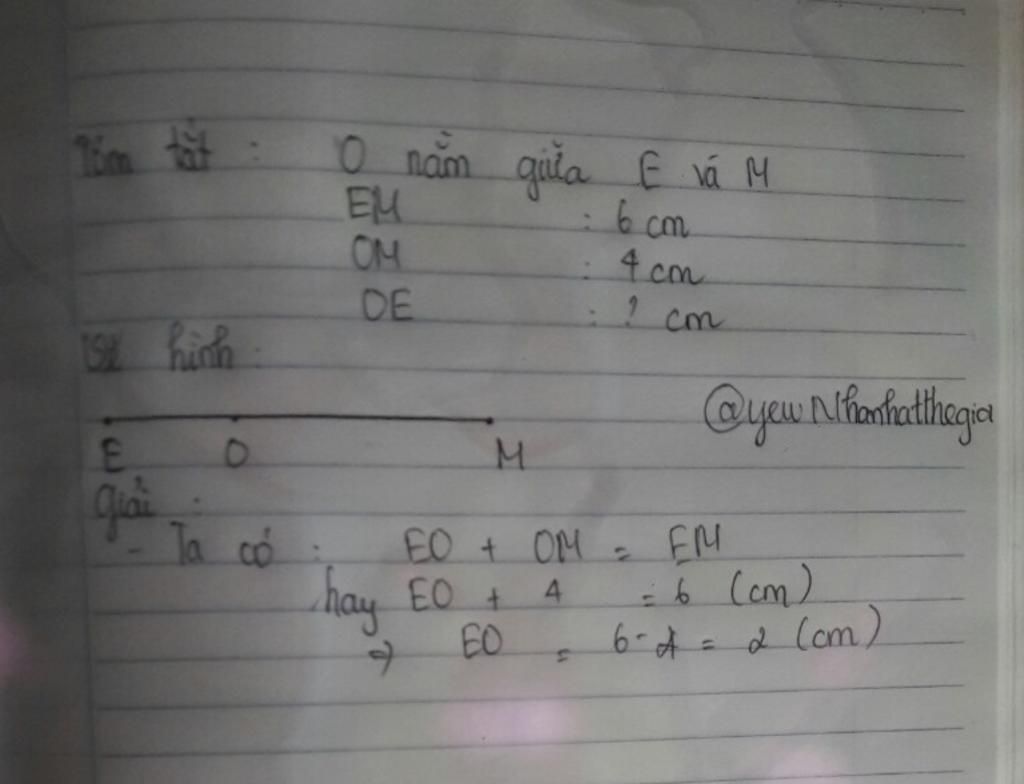 Tóm tắt : O nằm giữa E và M
EM : 6 cm
OM : 4 cm
OE : ? cm
Vẽ hình :
@yewNhanhatthegioi
E O M
Giải :
- Ta có : EO + OM = EM
hay EO + 4 = 6 (cm)
⇒ EO = 6 - 4 = 2 (cm)